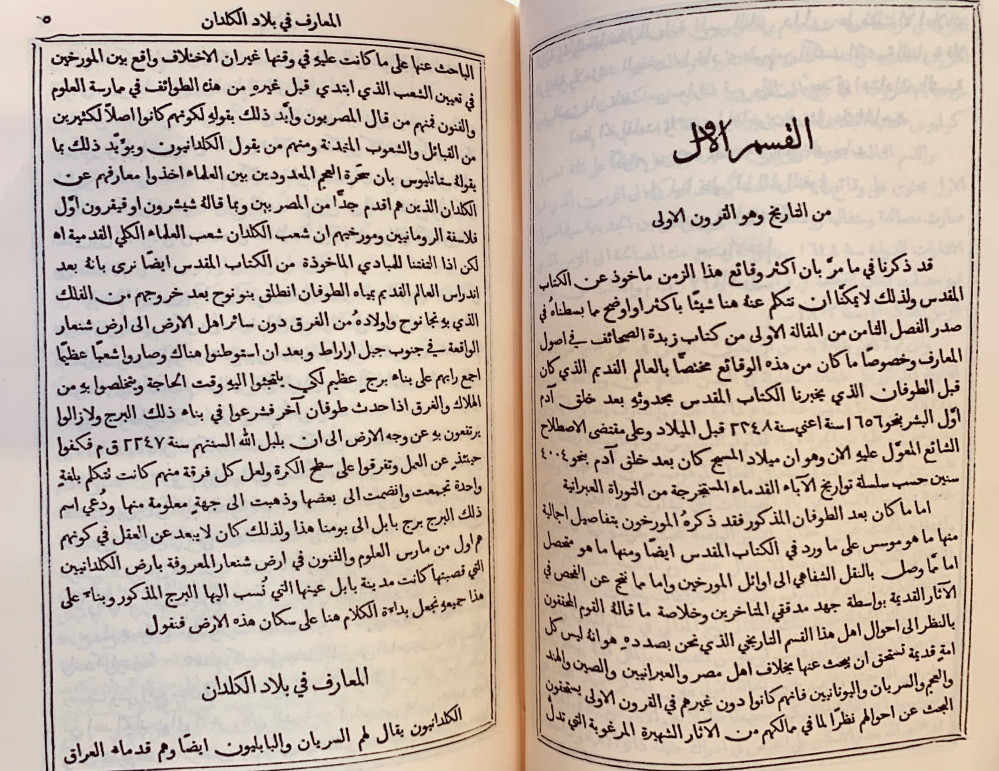 القسم الاول
من التاريخ وهو القرون الاولى
قد ذكرنا في ما مرّ بان اكثر وقائع هذا الزمن ماخوذ عن الكتاب
المقدس ولذلك لا يمكنّا ان نتكلم عنهُ هنا شيئًا باكثر او اوضح مما بسطناهُ في
صدر الفصل الثامن من المقالة الاولى من كتاب زبدة الصحائف في اصول
المعارف وخصوصًا ما كان من هذه الوقائع مختصًّا بالعالم القديم الذي كان
قبل الطوفان الذي يخبرنا الكتاب المقدس بحدوثهِ بعد خلق آدم
اوّل البشر بنحو ١٦٥٦ سنة اعني سنة ٢٢٤٨ قبل الميلاد وعلى مقتضى الاصطلاح
الشائع المعوّل عليهِ الان وهو ان ميلاد المسيح كان بعد خلق آدم بنحو ٤٠٠٤
سنين حسب سلسلة تواريخ الآباء القدماء المستخرجة من التوراة العبرانية
اما ما كان بعد الطوفان المذكور فقد ذكرهُ المورخون بتفاصيل اجمالية
منها ما هو موسس على ما ورد في الكتاب المقدس ايضًا ومنها ما هو متحصل
اما ممّا وصل بالنقل الشفاهي الى اوائل المورخين واما مما نتج عن الفحص في
الآثار القديمة بواسطة جهد مدققي المتاخرين وخلاصة ما قالهُ القوم المحققون
بالنظر الى احوال اهل هذا القسم التاريخي الذي نحن بصدده هو انهُ ليس كل
امةٍ قديمة تستحق ان يبحث عنها بخلاف اهل مصر والعبرانيين والصين والهند
والعجم والسريان واليونانيين فانهم كانوا دون غيرهم في القرون الاولى يستحقون
البحث عن احوالهم نظرًا لما في ممالكهم من الآثار الشهيرة المرغوبة التي تدلّ
المعارف في بلاد الكلدان
٥
الباحث عنها على ما كانت عليهِ في وقتها غير ان الاختلاف واقع بين المورخين
في تعيين الشعب الذي ابتدي قبل غيره من هذه الطوائف في ممارسة العلوم
والفنون فمنهم من قال المصريون وأيّد ذلك بقولهِ لكونهم كانوا اصلًا لكثيرين
من القبائل والشعوب المتمدنة ومنهم من يقول الكلدانيون ويؤيد ذلك بما
يقولهُ ستانليوس بان سحرة العجم المعدودين بين العلماء اخذوا معارفهم عن
الكلدان الذين هم اقدم جدًّا من المصريين وبما قالهُ شيشرون او قيقرون اوّل
فلاسفة الرومانيين ومورخيهم ان شعب الكلدان شعب العلماء الكلي القدمية اه
لكن اذا التفتنا للمبادي الماخوذة من الكتاب المقدس ايضًا نرى بانهُ بعد
اندراس العالم القديم بمياه الطوفان انطلق بنو نوح بعد خروجهم من الفلك
الذي بهِ نجا نوح واولادهُ من الغرق دون سائر اهل الارض الى ارض شنعار
الواقعة في جنوب جبل اراراط وبعد ان استوطنوا هناك وصاروا شعبًا عظيمًا
اجمع رايهم على بناء برج عظيم لكي يلتجئوا اليهِ وقت الحاجة ويتخلصوا بهِ من
الهلاك والغرق اذا حدث طوفان آخر فشرعوا في بناء ذلك البرج ولا زالوا
يرتفعون بهِ عن وجه الارض الى ان بلبل الله السنتهم سنة ٢٢٤٧ ق م فكفوا
حينئذٍ عن العمل وتفرقوا على سطح الكرة ولعل كل فرقة منهم كانت تتكلم بلغةٍ
واحدة تجمعت وانضمت الى بعضها وذهبت الى جهةٍ معلومة منها ودُعي اسم
ذلك البرج برج بابل الى يومنا هذا ولذلك كان لا يبعد عن العقل في كونهم
هم اول من مارس العلوم والفنون في ارض شنعار المعروفة بارض الكلدانيين
التي قصبتها كانت مدينة بابل عينها التي نُسب اليها البرج المذكور وبناءً على
هذا جميعهِ نجعل بداءة الكلام هنا على سكان هذه الارض فنقول
المعارف في بلاد الكلدان
الكلدانيون يقال لهم السريان والبابليون ايضًا وهم قدماء العراق